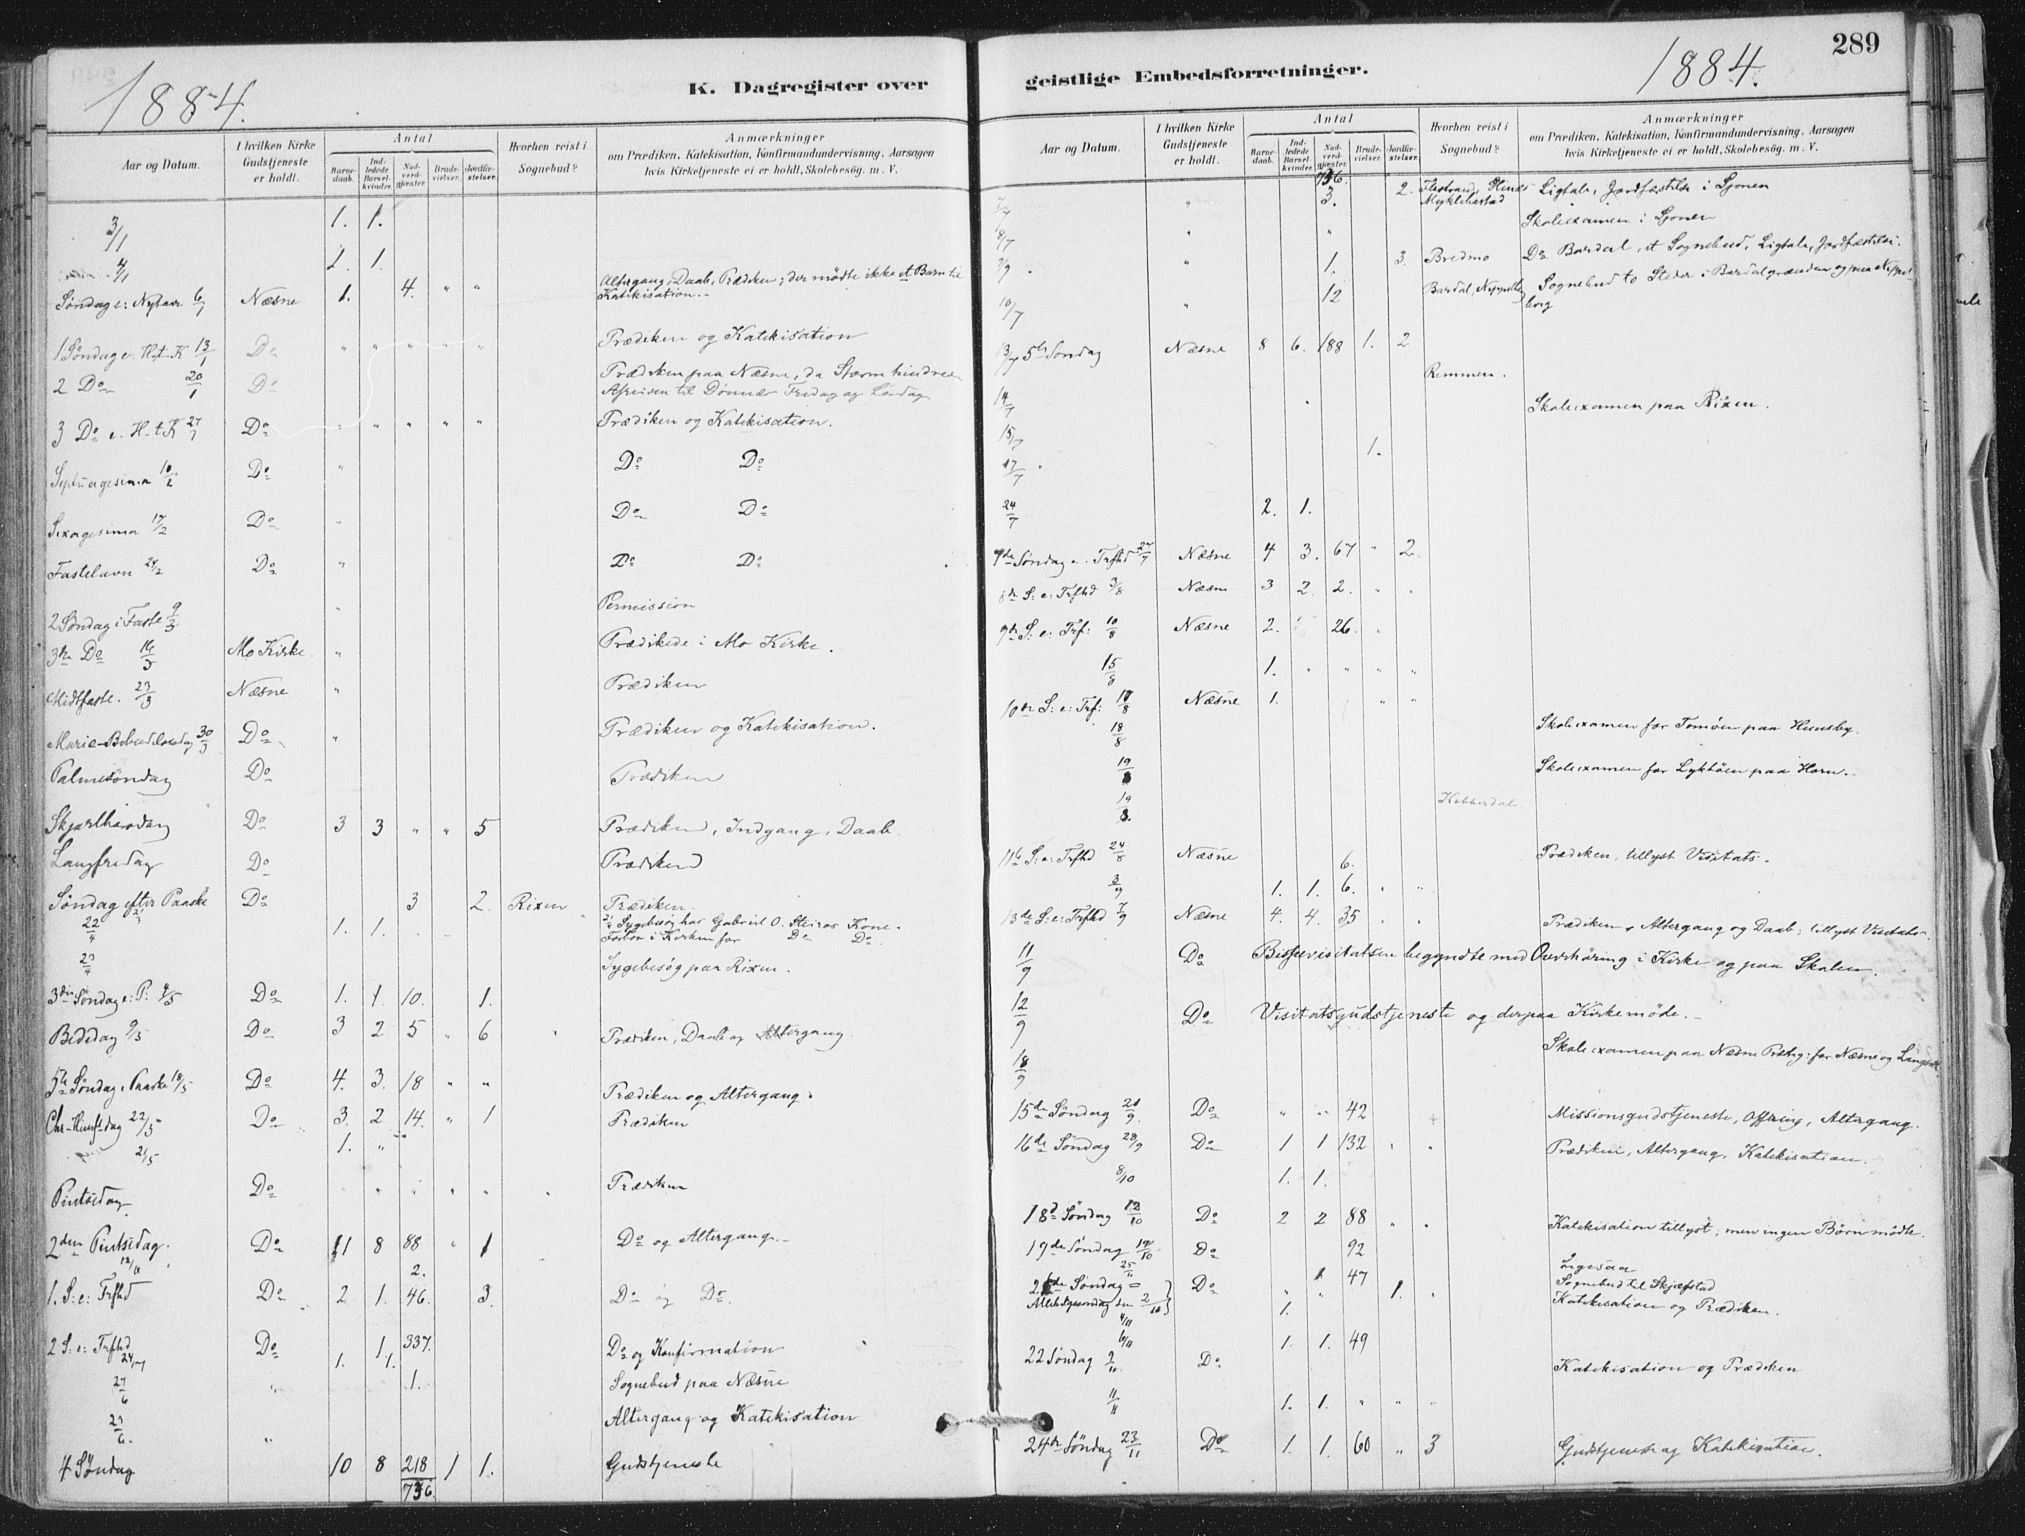 289
1884.
K. Dagregister over
Aar og Datum.
I hvilken Kirke Gudstjeneste er holdt.
Antal
Barnedaab.
Indledede Barselkvinder.
Nadverdgjester.
Brudevielser.
Jordfæstelser.
Hvorhen reist i Sognebud?
Anmærkninger
om Prædiken, Katekisation, Konfirmandundervisning, Aarsagen
hvis Kirketjeneste ei er holdt, Skolebesög m. V.
3/1 1. 1.
4/1 2. 1.
Søndag e: Nytaar 6/1 Næsne 1. 4. " " Altergang, Daab, Prædiken; der mødte ikke et Barn til
Katekisation.-
1 Søndag e. H.t.K 13/1 Do " " " " " Prædiken og Katekisation
2 Do 20/1 Do Prædiken paa Næsne, da Storm hindrede
Afreisen til Dønnæs Fredag og Lørdag
3 Do e. H.t.K 27/1 Do " " " " " Prædiken og Katekisation.
Septuagesima 10/2 Do " Do Do
Sexagesima 17/2 Do " Do Do
Fastelavn 24/2 Do " Do Do
2 Søndag i Faste 9/3 " Permission
3de Do 16/3 Mo Kirke. " Prædikede i Mo Kirke.
Midtfaste. 23/3 Næsne " Prædiken
Mariæ-Bebudelsesdag 30/3 Do " Prædiken og Katekisation.
Palmesøndag Do Prædiken
Skjærthorsdag Do 3 3 " " 5 Prædiken, Indgang, Daab.
Langfredag Do Prædiken
Søndag efter Paaske Do 3 2. Rixen Prædiken.
22/4 1. 1. Sygebesøg hos Gabriel O. Steiros Kone.
Forbøn i Kirken for Do Do.
23/4 Sygebesøg paa Rixen.
3die Søndag e: P: 4/5 Do 1. 1. 10. 1.
Bededag 9/5 Do 3 2 5 " 6 Prædiken, Daab og Altergang
5te Søndag e. Paaske 18/5 Do 4. 3. 18 " " Prædiken og Altergang.
Chr-Himfldag 22/5 Do 3. 2 14. " 1 Prædiken
21/5 1. "
Pintsedag. Do " " " " " Prædiken
2den Pintsedag. Do 11 8 88 " 1 Do og Altergang.-
12/6 2.
1. S: e: Trfhd Do 2. 1. 46. 3. Do og Do.
2 S: e: Trfhd Do 1 337. Do og Konfirmation
1. 1.
27/6 " 1. Sognebud paa Næsne
29/6. " Altergang og Katekisation
4 Søndag 10 8 218 1 1. Gudstjeneste
736.
geistlige Embedsforretninger.
1884.
Aar og Datum.
I hvilken Kirke Gudstjeneste er holdt.
Antal
Barnedaab.
Indledede Barselkvinder.
Nadverdgjester.
Brudevielser.
Jordfæstelser.
Hvorhen reist i Sognebud?
Anmærkninger
om Prædiken, Katekisation, Konfirmandundervisning, Aarsagen
hvis Kirketjeneste ei er holdt, Skolebesög m. V.
736.
7/7 " 3. 2. Myklebostad Ligtale, Jordfæstelse i Sjonen
8/7 " " Skoleexamen i Sjonen
" 1. 3. Bredmo Do Bardal, et Sognebud, Ligtale, Jordfæstelse.
10/7 " 12 Bardal, Sognebud to Steder i Bardalgrænden og paa
13/7 5te Søndag Næsne 8 6. 188 1. 2
14/7 Remmen.
Skoleexamen paa Rixen.
15/7
17/7 1.
24/7 2. 1.
7de Søndag e. Trfhd 27/7 Næsne 4 3. 67 " 2.
8de S: e: Trfhd 3/8 Næsne 3 2. 2. " "
9de S: e: Trf: 10/8 Næsne 2. 26. "
15/8 1. " " " "
10de S: e: Trf: 17/8 Næsne 1. " "
18/8 Skoleexamen for Tomøen paa Husby.
19/8 Skoleexamen for Lyktøen paa Horn.-
19/8. Kobberdal
11te S: e: Trfhd 24/8 Næsne 6. Prædiken, tillyst Visitats.
3/9 1. 1. 6. " "
13de S: e: Trfhd 7/9 Næsne 4. 4. 35 " " Prædiken, Altergang og Daab; tillyst Visitats.
11/9 Do Bispevisitatsen begyndte med Overhøring i Kirke og paa Skolen.
12/9 Do Visitatsgudstjeneste og derpaa Kirkemøde.-
18/9 Skoleexamen paa Næsne Præstg: for Næsne og
15de Søndag 21/9. Do " " 42 Missionsgudstjeneste, Offring, Altergang.
16de Søndag 28/9 Do 1 1 132 " " Prædiken, Altergang, Katekisation.
8/10 1. 1.
18d Søndag 12/10 Do 2 2 88 " " Katekisation tillyst; men ingen Børn mødte.
19de Søndag 19/10 Do 92 Ligesaa
Søndag Do 47 Sognebud til Skjæfstad
Allehelgensdag den 2/11 1. " 1. " Katekisation og Prædiken.
4/11
6/11 1. 1. 49
22 Søndag 9/11 Do Katekisation og Prædiken
11/11 1. 1. " " "
24de Søndag 23/11 Do 1. 1. 60 " 3 Gudstjeneste og Katekisation.